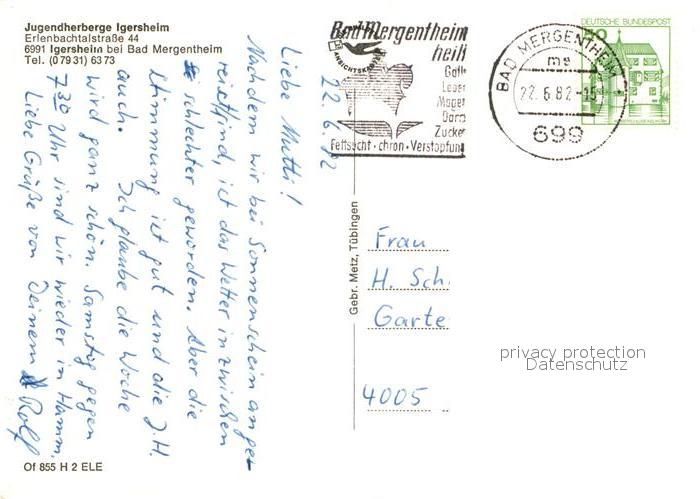 Jugendherberge Igersheim
Erlenbachtalstraße 44
6991 Igersheim bei Bad Mergentheim
Tel. (07931) 6373
Bad Mergentheim
heilt
Galle
Leber
Magen
Darm
Zucker
Fettsucht · chron · Verstopfung
BAD MERGENTHEIM
ma
22.6.82-15
699
DEUTSCHE BUNDESPOST
22.6.82
Liebe Mutti!
Nachdem wir bei Sonnenschein ange-
reist sind, ist das Wetter inzwischen
schlechter geworden. Aber die
Stimmung ist gut und die J.H.
auch. Ich glaube die Woche
wird ganz schön. Samstag gegen
7 30 Uhr sind wir wieder in Hamm.
Liebe Grüße von Deinem Rolf
Gebr. Metz, Tübingen
Frau
H. Sch
Garte
4005
privacy protection
Datenschutz
Of 855 H 2 ELE